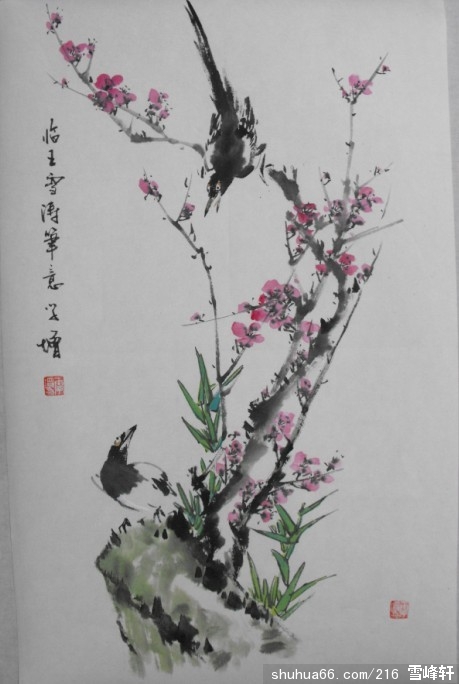 临王雪涛筆意
shuhua66.com/216 雪峰轩